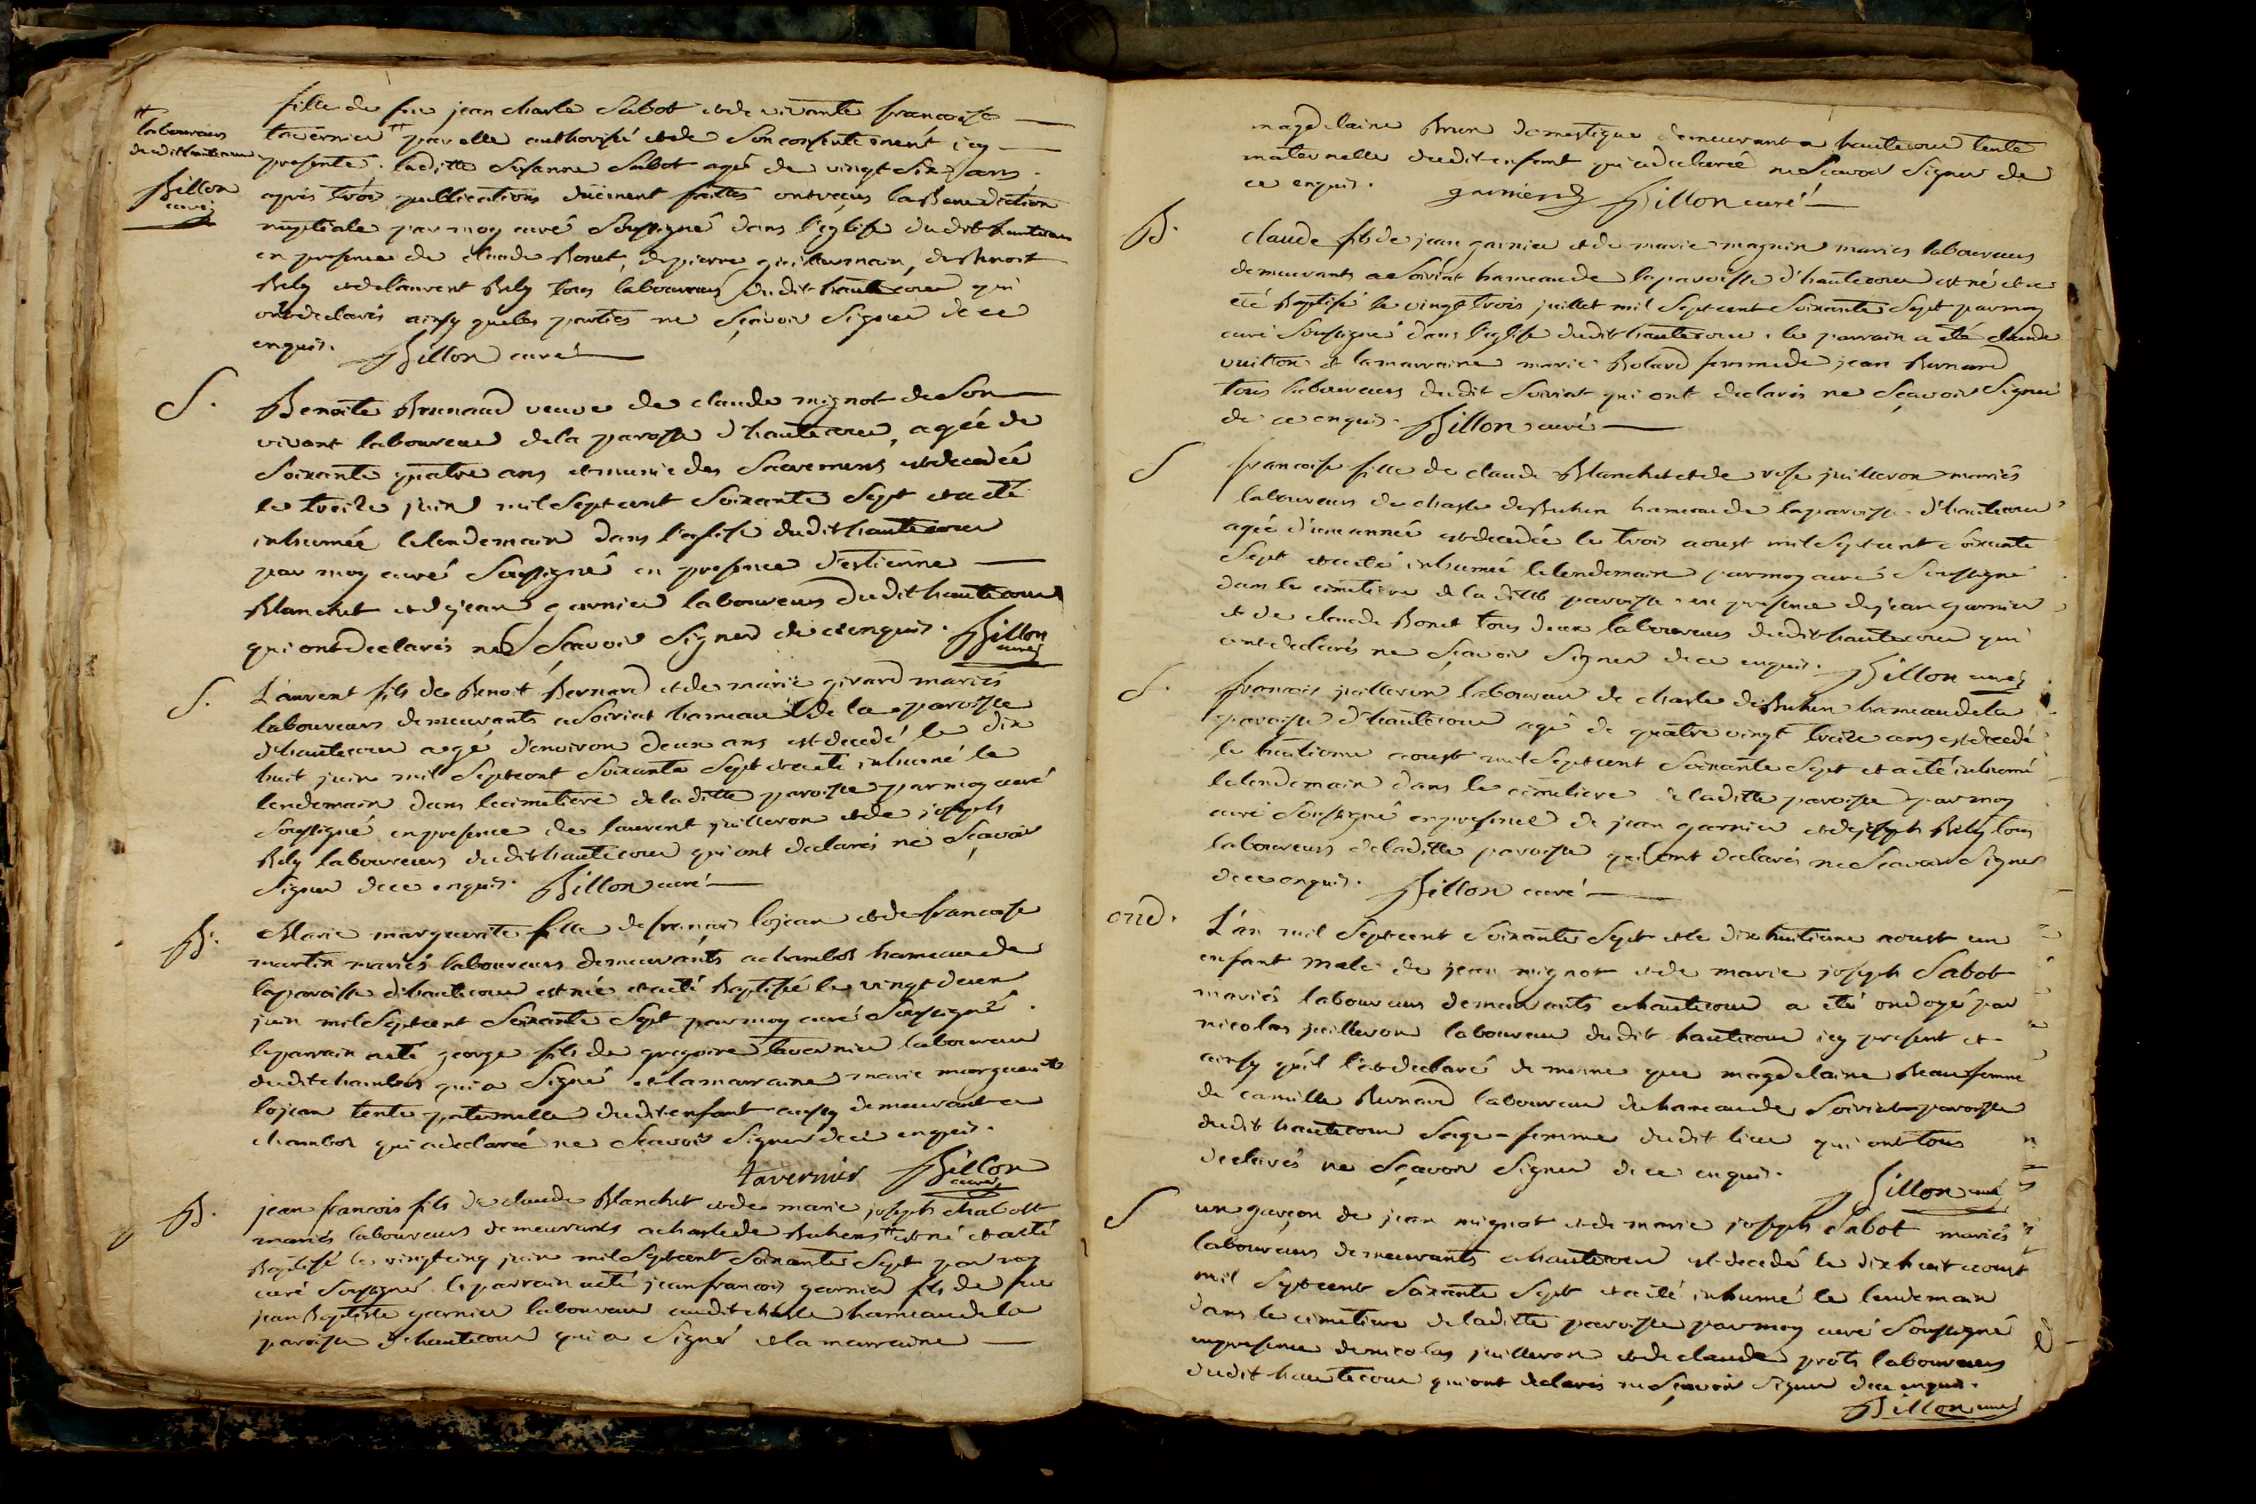 fille de feu jean charle Sabot et de vivante francoise
tavernier # par elle authorisé et de son consentement icy
# laboureurs
dudit hautecour
Billon
curé
presente, laditte Susanne Sabot agé de vingt six ans.
aprés trois publications düement faittes ont reçus la Benediction
nuptiale par moy curé soussigné dans l'eglise dudit hautecour
en presence de claude Bonet, de pierre guillermain, de Benoit
Bely et de laurent Bely tous laboureurs dudit hautecour qui
ont declarés ainsy que les parties ne sçavoir signer de ce
enquis. Billon curé
S. Benoite Brunand veuve de claude mignot de son
vivant laboureur de la paroisse d'hautecour, agée de
soixante quatre ans et munie des sacremens est decedée
le treize juin mil sept cent soixante sept et a été
inhumée le lendemain dans l'eglise dudit hautecour
par moy curé soussigné en presence d'estienne
Blanchet et de jean garnier laboureurs dudit hautecour
qui ont declarés ne sçavoir signer de ce enquis. Billon
curé
S. Laurent fils de Benoit Bernard et de marie girard mariés
laboureurs demeurants a Soiriat hameau de la paroisse
d'hautecour agé d'environ deux ans est decedé le dix
huit juin mil sept cent soixante sept et a été inhumé le
lendemain dans le cimetiere de laditte paroisse par moy curé
soussigné en presence de laurent juilleron et de joseph
Bely laboureurs dudit hautecour qui ont declarés ne sçavoir
signer de ce enquis. Billon curé
B. Marie marguerite fille de françois lojean et de francoise
martin mariés laboureurs demeurants a chambod hameau de
la paroisse d'hautecour est née et a été Baptisée le vingt deux
juin mil sept cent soixante sept par moy curé soussigné.
le parrain a été george fils de gregoire tavernier laboureur
dudit chambod qui a signé et la marraine marie marguerite
lojean tente paternelle dudit enfant aussy demeurante a
chambod qui a declarée ne sçavoir signer de ce enquis.
tavernier Billon
curé
B. jean francois fils de claude Blanchet et de marie joseph chabott
mariés laboureurs demeurants a charle de Buhens # est né et a été
Baptisé le vingt cinq juin mil sept cent soixante sept par moy
curé soussigné le parrain a été jean francois garnier fils de feu
jean Baptiste garnier laboureur audit charle hameau de la
paroisse d'hautecour qui a signé et la marraine
magdelaine Brun domestique demeurant a hautecour tente
maternelle dudit enfant qui a declarée ne sçavoir signer de
ce enquis. garnier Billon curé
B. claude fils de jean garnier et de marie magnin mariés laboureurs
demeurants a Soiriat hameau de la paroisse d'hautecour est né et a
été Baptisé le vingt trois juillet mil sept cent soixante sept par moy
curé soussigné dans l'eglise dudit hautecour. le parrain a été claude
vuitton et la marraine marie Bolard femme de jean Bernard
tous laboureurs dudit Soiriat qui ont declarés ne sçavoir signer
de ce enquis. Billon curé
S francoise fille de claude Blanchet et de rose juilleron mariés
laboureurs de charle de Buhen hameau de la paroisse d'hautecour
agée d'une année est decedée le trois aoust mil sept cent soixante
sept et a été inhumée le lendemain par moy curé soussigné
dans le cimetiere de la ditte paroisse en presence de jean garnier
et de claude Bonet tous deux laboureurs dudit hautecour qui
ont declarés ne sçavoir signer de ce enquis. Billon curé
S. francois juilleron laboureur de charle de Buhen hameau de la
paroisse d'hautecour agé de quatre vingt treize ans est decedé
le huitieme aoust mil sept cent soixante sept et a été inhumé
le lendemain dans le cimetiere de laditte paroisse par moy
curé soussigné en presence de jean garnier et de joseph Bely tous
laboureurs de laditte paroisse qui ont declarés ne sçavoir signer
de ce enquis. Billon curé
ond. L'an mil sept cent soixante sept et le dix huitieme aoust un
enfant male de jean mignot et de marie joseph Sabot
mariés laboureurs demeurants a hautecour a été ondoyé par
nicolas juilleron laboureur dudit hautecour icy present et
ainsy qu'il l'at declaré de meme que magdelaine Beau femme
de camille Bernard laboureur du hameau de Soiriat paroisse
dudit hautecour sage-femme dudit lieu qui ont tous
declarés ne sçavoir signer de ce enquis.
Billon curé
S un garçon de jean mignot et de marie joseph Sabot mariés
laboureurs demeurants a hautecour est decedé le dix huit aoust
mil sept cent soixante sept et a été inhumé le lendemain
dans le cimetiere de laditte paroisse par moy curé soussigné
en presence de nicolas juilleron et de claude prots laboureurs
dudit hautecour qui ont declarés ne sçavoir signer de ce enquis.
Billon curé